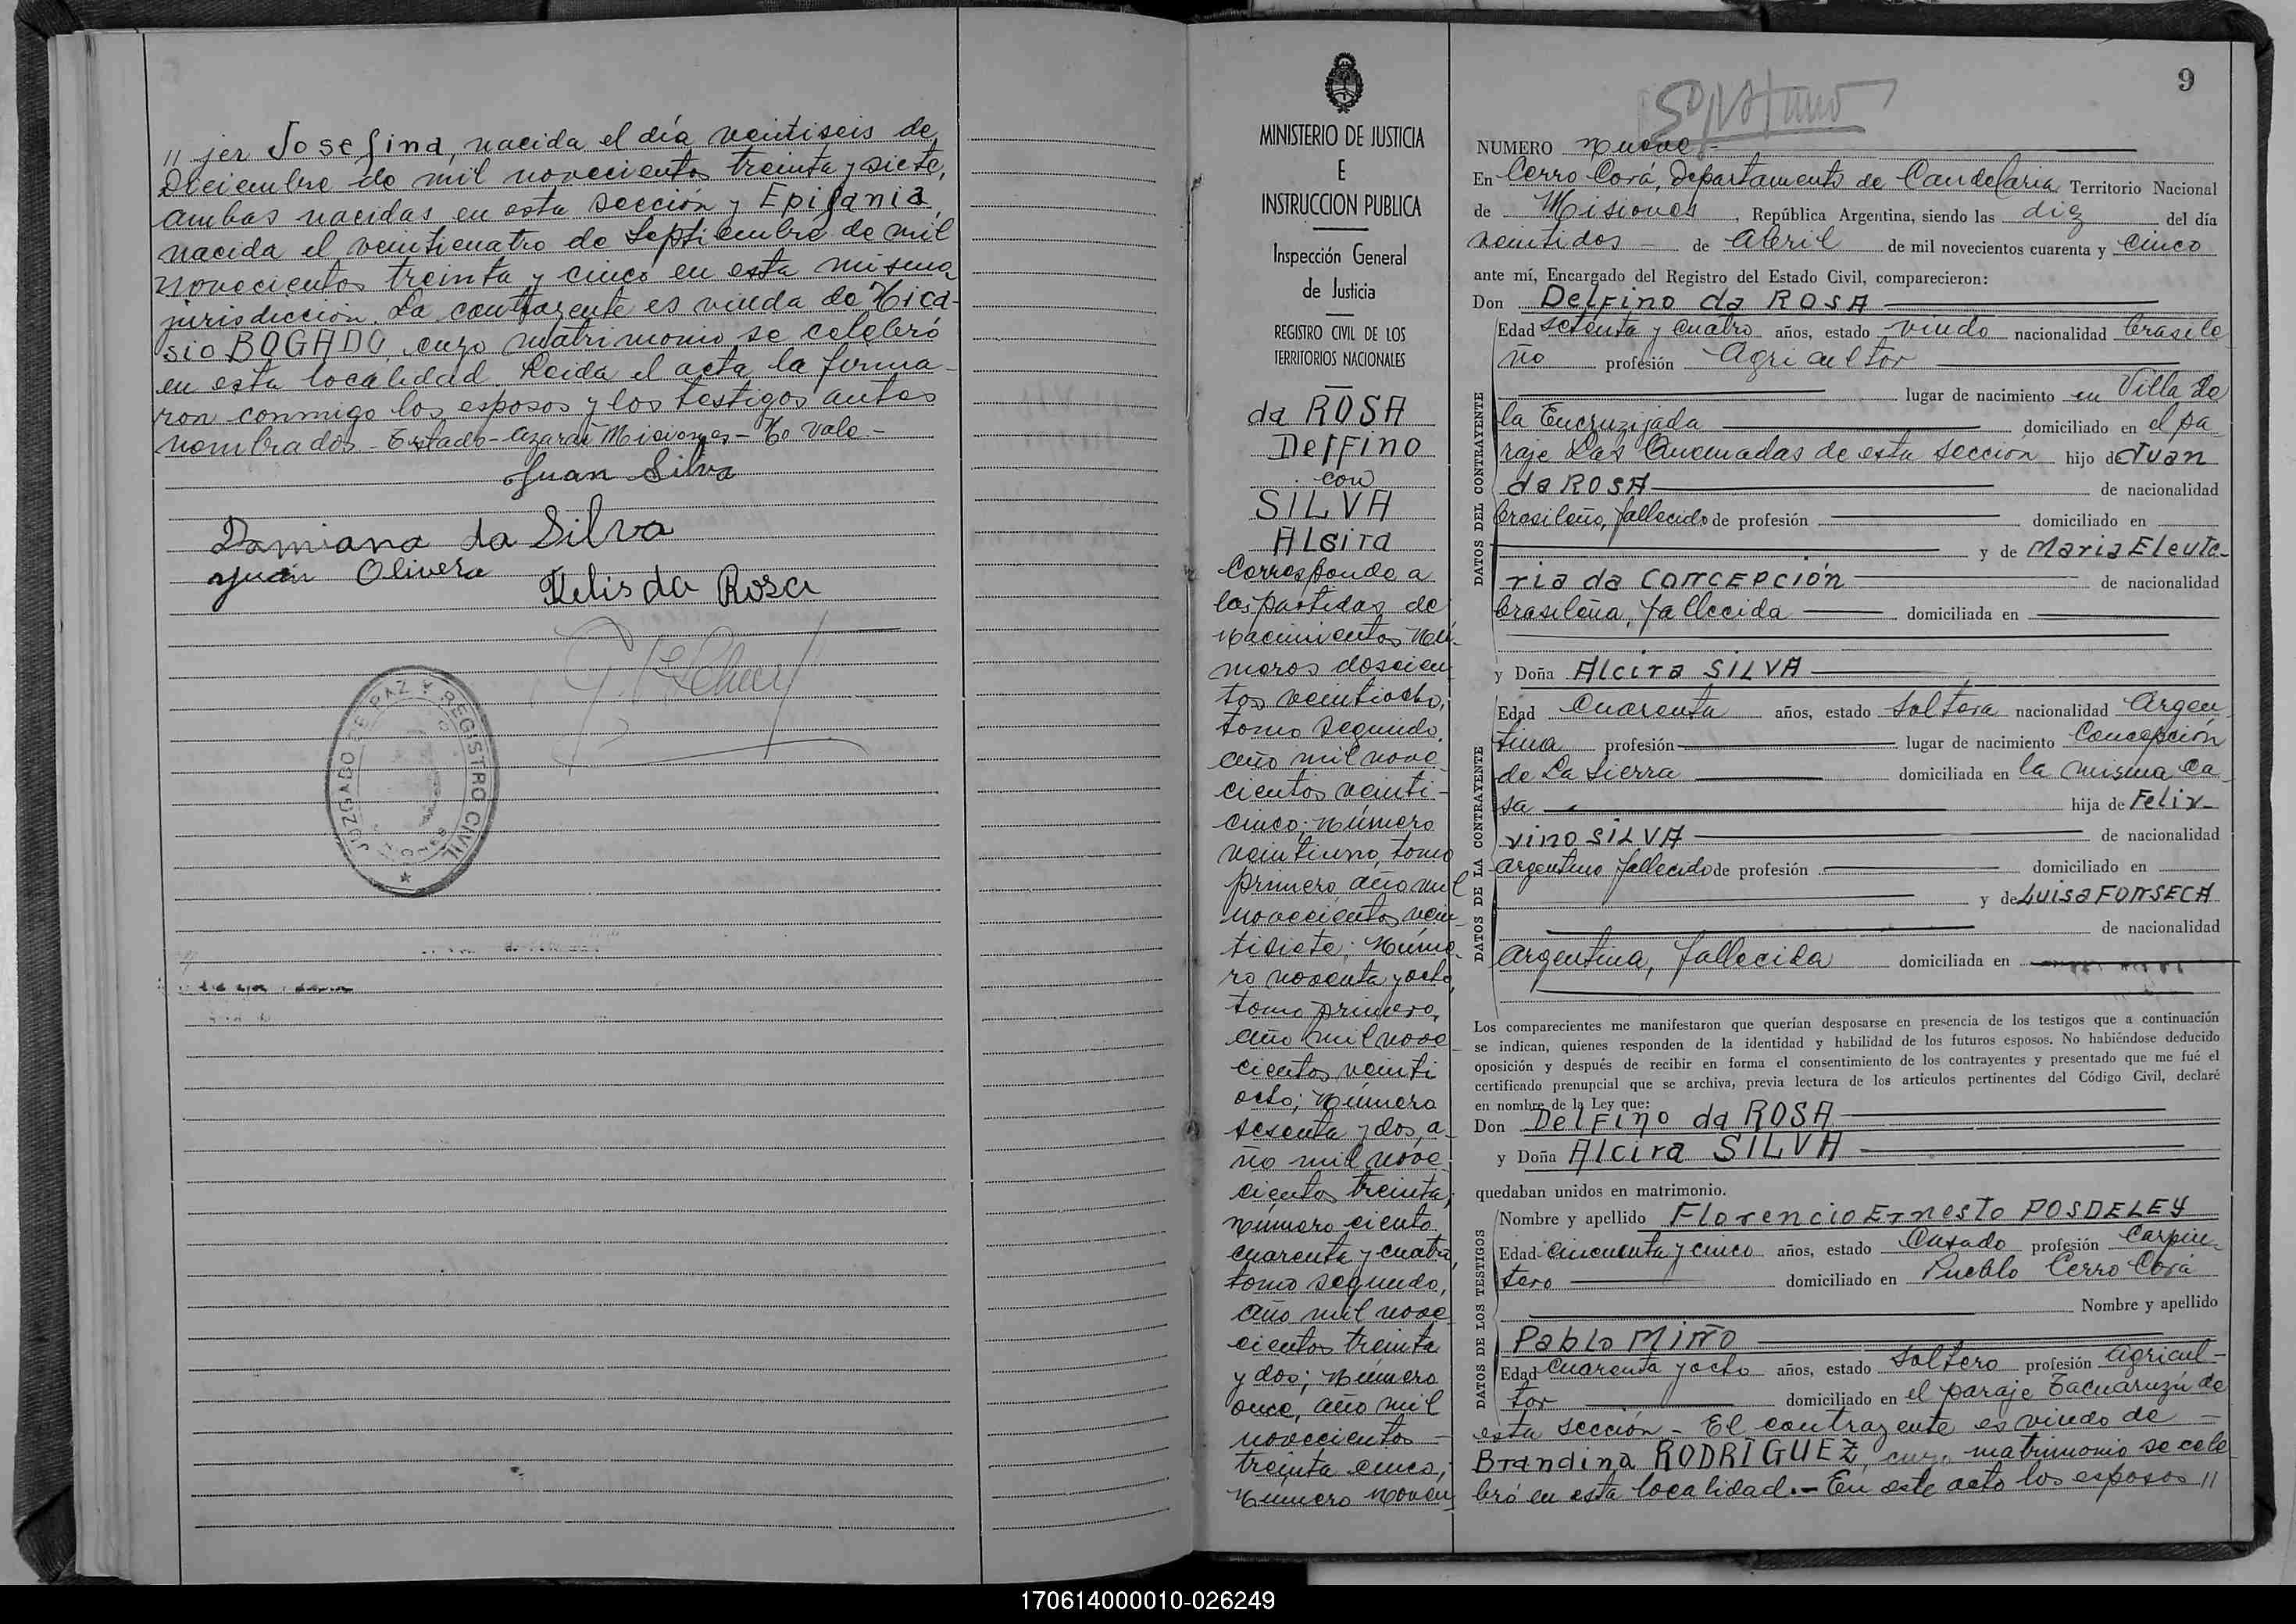 " jer Josefina, nacida el día veintiseis de
Diciembre de mil novecientos treinta y siete,
ambas nacidas en esta sección y Epifania,
nacida el veinticuatro de Septiembre de mil
novecientos treinta y cinco en esta misma
jurisdicción. La contrayente es viuda de Nica-
sio BOGADO, cuyo matrimonio se celebró
en esta localidad. Leida el acta la firma-
ron conmigo los esposos y los testigos antes
nombrados - Estado - Azara Misiones - No Vale -
Juan Silva
Damiana da Silva
Juan Olivera
Felis da Rosa
JUZGADO DE PAZ Y REGISTRO CIVIL
MINISTERIO DE JUSTICIA
E
INSTRUCCION PUBLICA
Inspección General
de Justicia
REGISTRO CIVIL DE LOS
TERRITORIOS NACIONALES
da ROSA
Delfino
con
SILVA
Alcira
Corresponde a
las partidas de
Nacimientos Nú-
meros doscien
tos veintiocho,
tomo segundo,
año mil nove
cientos veinti-
cinco; número
veintiuno, tomo
primero año mil
novecientos vein
tisiete; Núme-
ro noventa y ocho,
tomo primero,
año mil nove
cientos veinti
ocho; Número
sesenta y dos, a-
ño mil nove
cientos treinta;
número ciento
cuarenta y cuatro,
tomo segundo,
año mil nove
cientos treinta
y dos; Número
once, año mil
novecientos -
treinta cinco,
Número noven
9
NUMERO nueve -
En Cerro Corá, departamento de Candelaria Territorio Nacional
de Misiones, República Argentina, siendo las diez del día
veintidos - de Abril de mil novecientos cuarenta y cinco
ante mí, Encargado del Registro del Estado Civil, comparecieron:
DATOS DEL CONTRAYENTE
Don Delfino da ROSA
Edad setenta y cuatro años, estado viudo nacionalidad brasile
ño profesión Agricultor
lugar de nacimiento en Villa de
la Encruzijada domiciliado en el pa
raje Las Quemadas de esta sección hijo de Juan
da ROSA de nacionalidad
brasileño, fallecido de profesión domiciliado en
y de Maria Eleute-
ria da CONCEPCIÓN de nacionalidad
brasilena, fallecida domiciliada en
DATOS DE LA CONTRAYENTE
y Doña Alcira SILVA
Edad Cuarenta años, estado soltera nacionalidad Argen
tina profesión lugar de nacimiento Concepción
de La Sierra domiciliada en la misma ca
sa hija de Felix-
vino SILVA de nacionalidad
argentino fallecido de profesión domiciliado en
y de Luisa FONSECA
de nacionalidad
argentina, fallecida domiciliada en
Los comparecientes me manifestaron que querían desposarse en presencia de los testigos que a continuación
se indican, quienes responden de la identidad y habilidad de los futuros esposos. No habiéndose deducido
oposición y después de recibir en forma el consentimiento de los contrayentes y presentado que me fué el
certificado prenupcial que se archiva, previa lectura de los artículos pertinentes del Código Civil, declaré
en nombre de la Ley que:
Don Delfino da ROSA
y Doña Alcira SILVA
quedaban unidos en matrimonio.
DATOS DE LOS TESTIGOS
Nombre y apellido Florencio Ernesto POSDELEY
Edad cincuenta y cinco años, estado Casado profesión Carpin
tero domiciliado en Pueblo Cerro Corá
Nombre y apellido
Pablo MIÑO
Edad Cuarenta y ocho años, estado soltero profesión agricul-
tor domiciliado en el paraje Tacuaruzú de
esta sección - El contrayente es viudo de -
Brandina RODRIGUEZ, cuyo matrimonio se cele
bró en esta localidad. - En este acto los esposos "
170614000010-026249